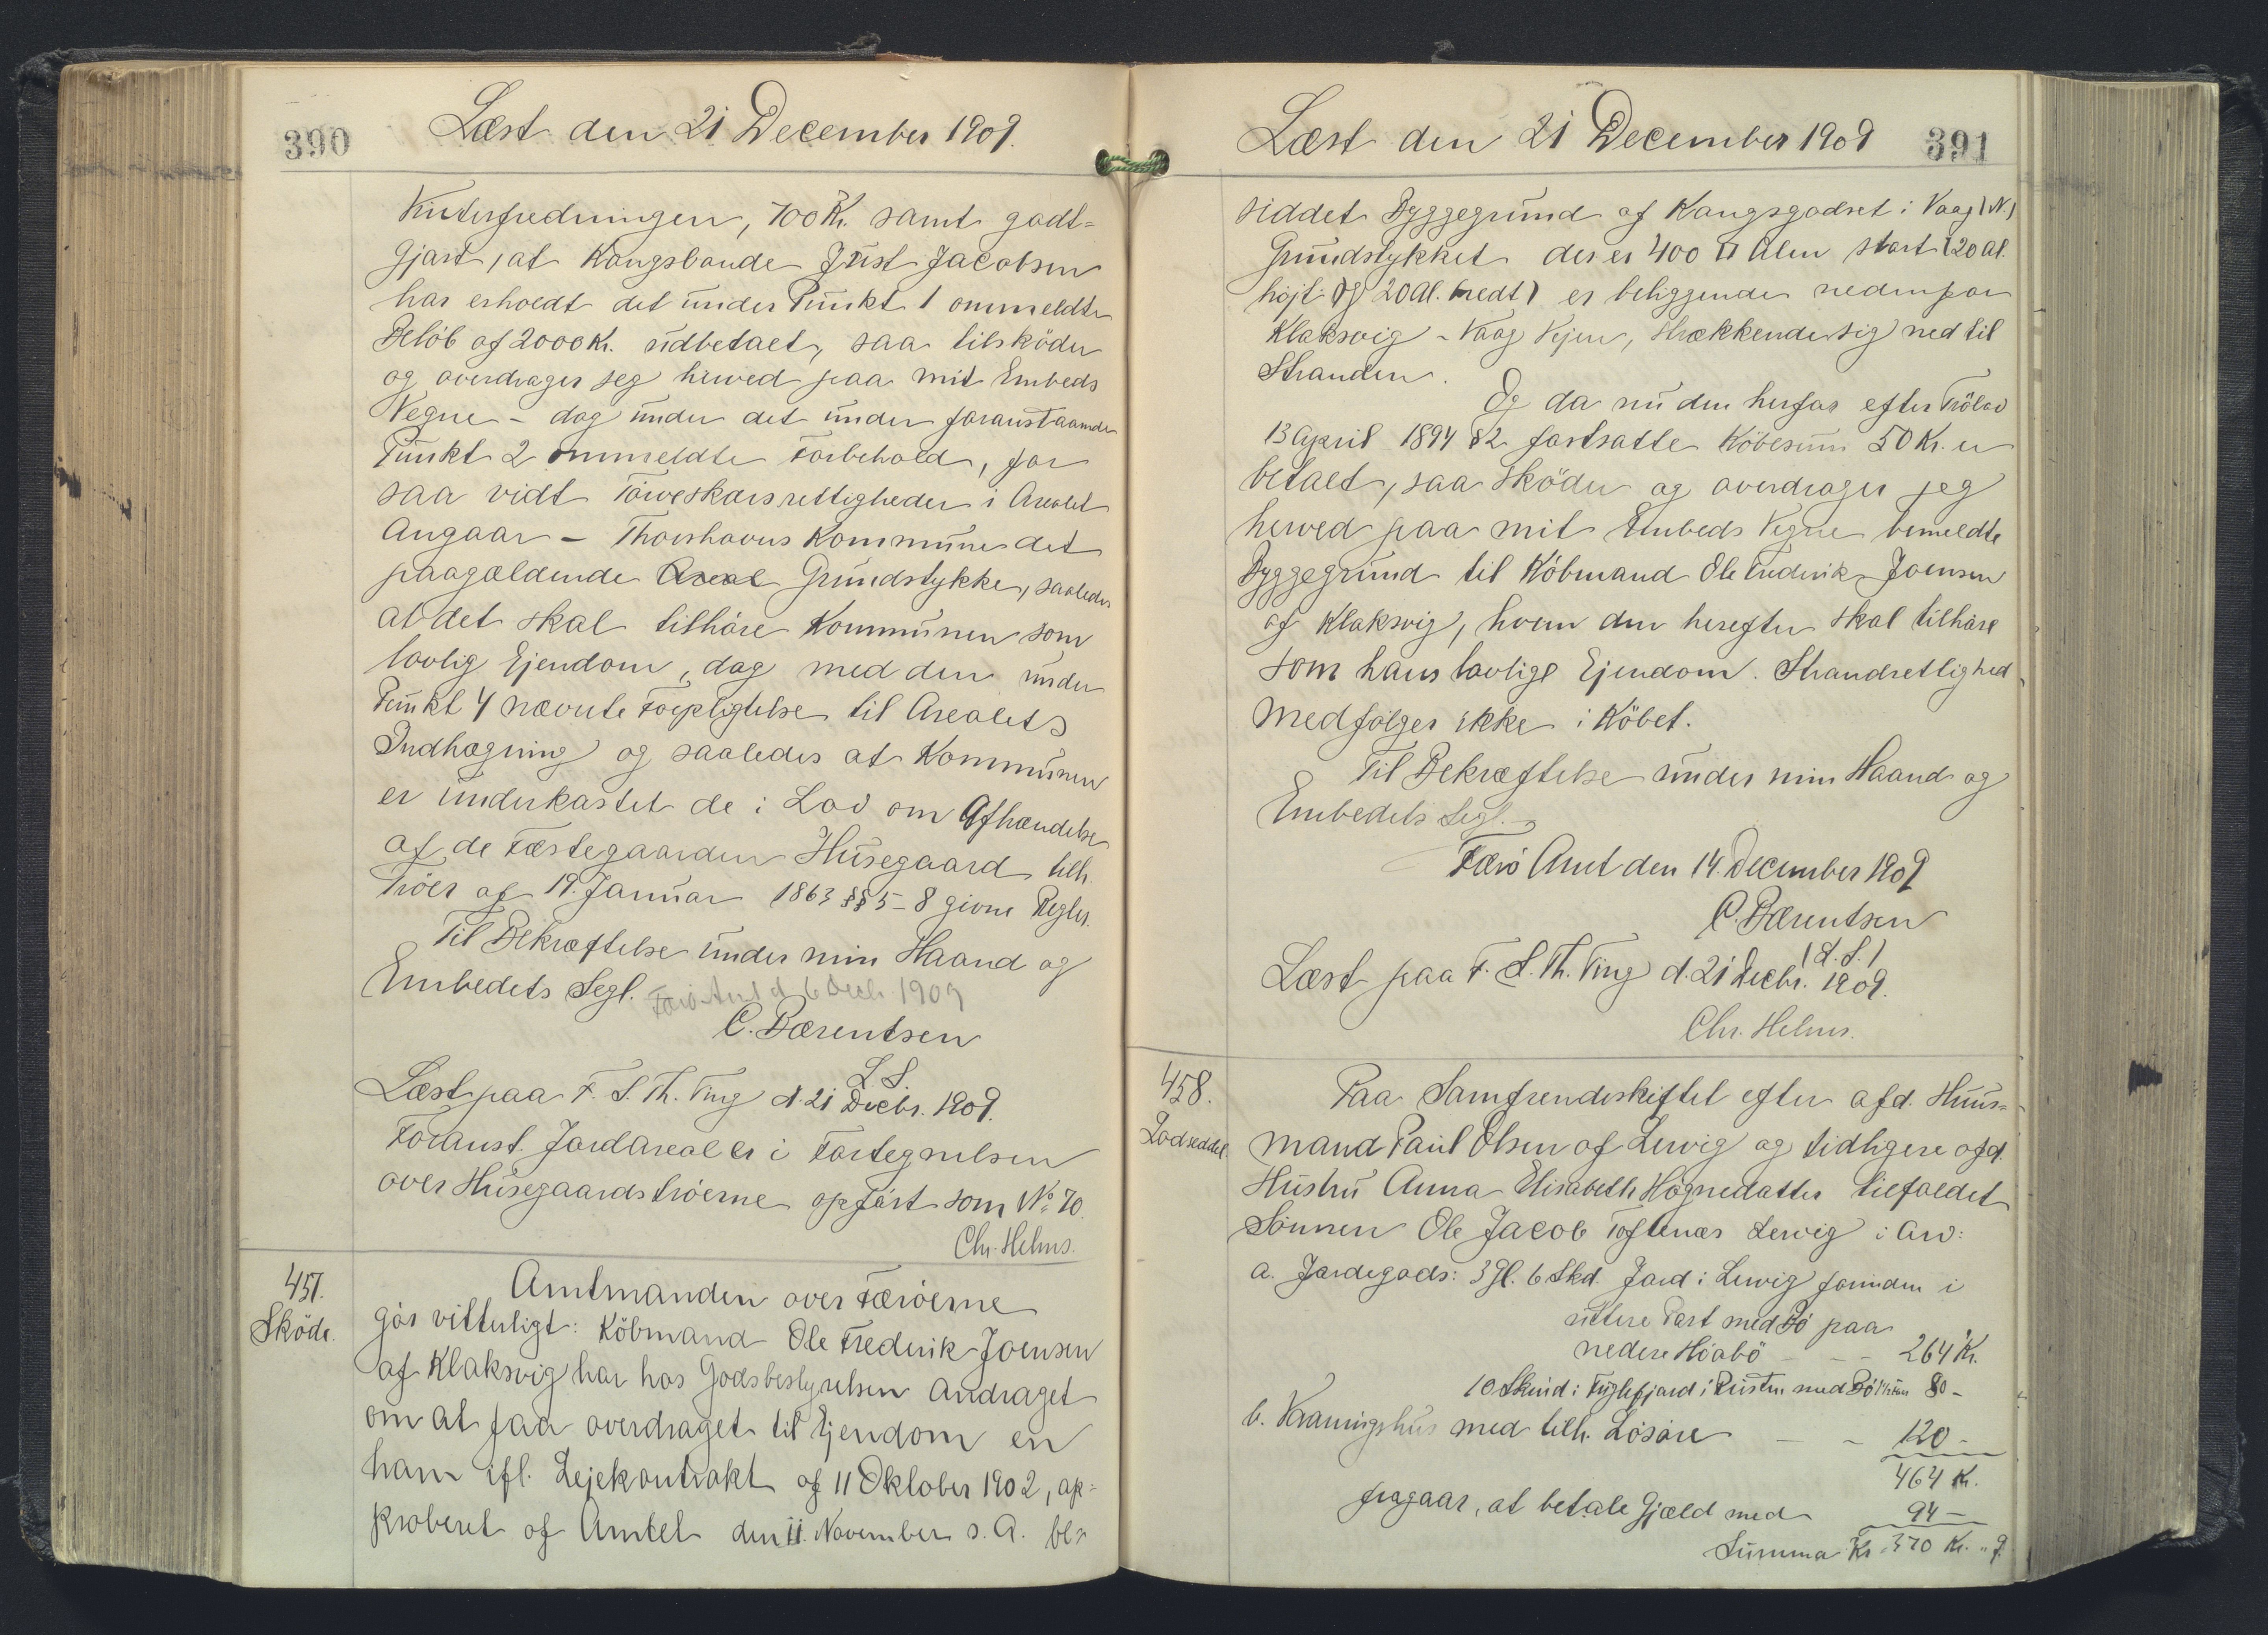 390
Læst den 21 December 1909.
Kuterfredningen, 700 Kr. samt godt=
gjort, at Kongsbonde Just Jacobsen
har erholdt det under Punkt 1 ommeldte
Beløb af 2000 Kr. udbetalt, saa tilsköder
og overdrager jeg herved paa mit Embeds
Vegne - dog under det under foranstaaende
Punkt 2 ommeldte Forbehold, for
saa vidt Törveskærsrettigheder i Arealet
angaar - Thorshavns Kommune det
paagældende Areal Grundstykke, saaledes
at det skal tilhöre Kommunen som
lovlig Ejendom, dog med den under
Punkt 4 nævnte Forpligtelse til Arealets
Indhegning og saaledes at Kommunen
er underkastet de i Lov om Afhændelse
af de Fæstegaarden Husegaard tilh.
Tröer af 19. Januar 1863 §§ 5-8 givne Regler.
Til Bekræftelse under min Haand og
Embedets Segl. Færö Amt d. 6 Decb. 1909
C. Bærentsen
L.S.
Læst paa F. S. Th. Ting d. 21 Decbr. 1909.
Foranst. Jordareal er i Fortegnelsen
over Husegaardströerne opfört som No. 70.
Chr. Helms.
457.
Sköde.
Amtmanden over Færöerne
gör vitterligt: Köbmand Ole Frederik Joensen
af Klaksvig har hos Godsbestyrelsen andraget
om at faa overdraget til Ejendom en
ham ifl. Lejekontrakt af 11 Oktober 1902, ap=
proberet af Amtet den 11. November s. A. be=
Læst den 21 December 1909
391
siddet Byggegrund af Kongsgodset i Vaag (N.)
Grundstykket der er 400 □ Alen stort (20 Al.
höjt og 20 Al. bredt) er beliggende nedenfor
Klaksvig - Vaag Vejen, strækkende sig ned til
Stranden.
Og da nu den herfor efter Trölov
13 April 1894 § 2 fastsatte Köbesum 50 Kr. er
betalt, saa sköder og overdrager jeg
herved paa mit Embeds Vegne bemeldte
Byggegrund til Köbmand Ole Frederik Joensen
af Klaksvig, hvem den herefter skal tilhöre
som hans lovlige Ejendom. Strandrettighed
medfölger ikke i Köbet.
Til Bekræftelse under min Haand og
Embedets Segl.
Færö Amt den 14. December 1909
C. Bærentsen
(L.S.)
Læst paa F. S. Th. Ting d. 21 Decbr. 1909.
Chr. Helms.
458.
Lodseddel
Paa Samfrendeskiftet efter afd. Huus=
mand Paul Olsen af Lervig og tidligere afd.
Hustru Anna Elisabeth Högnedatter tilfaldet
Sönnen Ole Jacob Toftenæs Lervig i Arv:
a. Jordegods: 3 Gl. 6 Skd. Jord i Lervig forinden i
uttere Part med Bö paa
nedere Höabö - - - 264 Kr.
10 Skind i Fuglefjord i Rustu med Bö 80 -
b. Vaaningshus med tilh. Lösöre - - 120 -
464 Kr.
fragaar, at betale Gjæld med 94 -
Summa Kr. 370 Kr. " Ø.